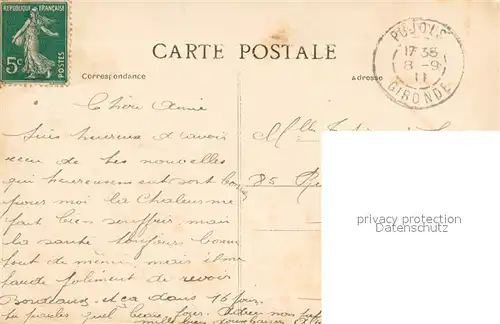 REPUBLIQUE FRANÇAISE
5c POSTES
CARTE POSTALE
PUJOLS
17 35
8 - 9
11
GIRONDE
Correspondance
adresse
Chère Amie
Suis heureuse d'avoir
reçu de tes nouvelles
qui heureusement sont bonnes
pour moi la Chaleur me
fait bien souffrir, mais
la santé toujours bonne
tout de même, mais il me
tarde joliment de revoir
Bordeaux, dans 16 jours
tu parles quel beau jour. Adieu
mille bons
Mlle
85 R
privacy protection
Datenschutz